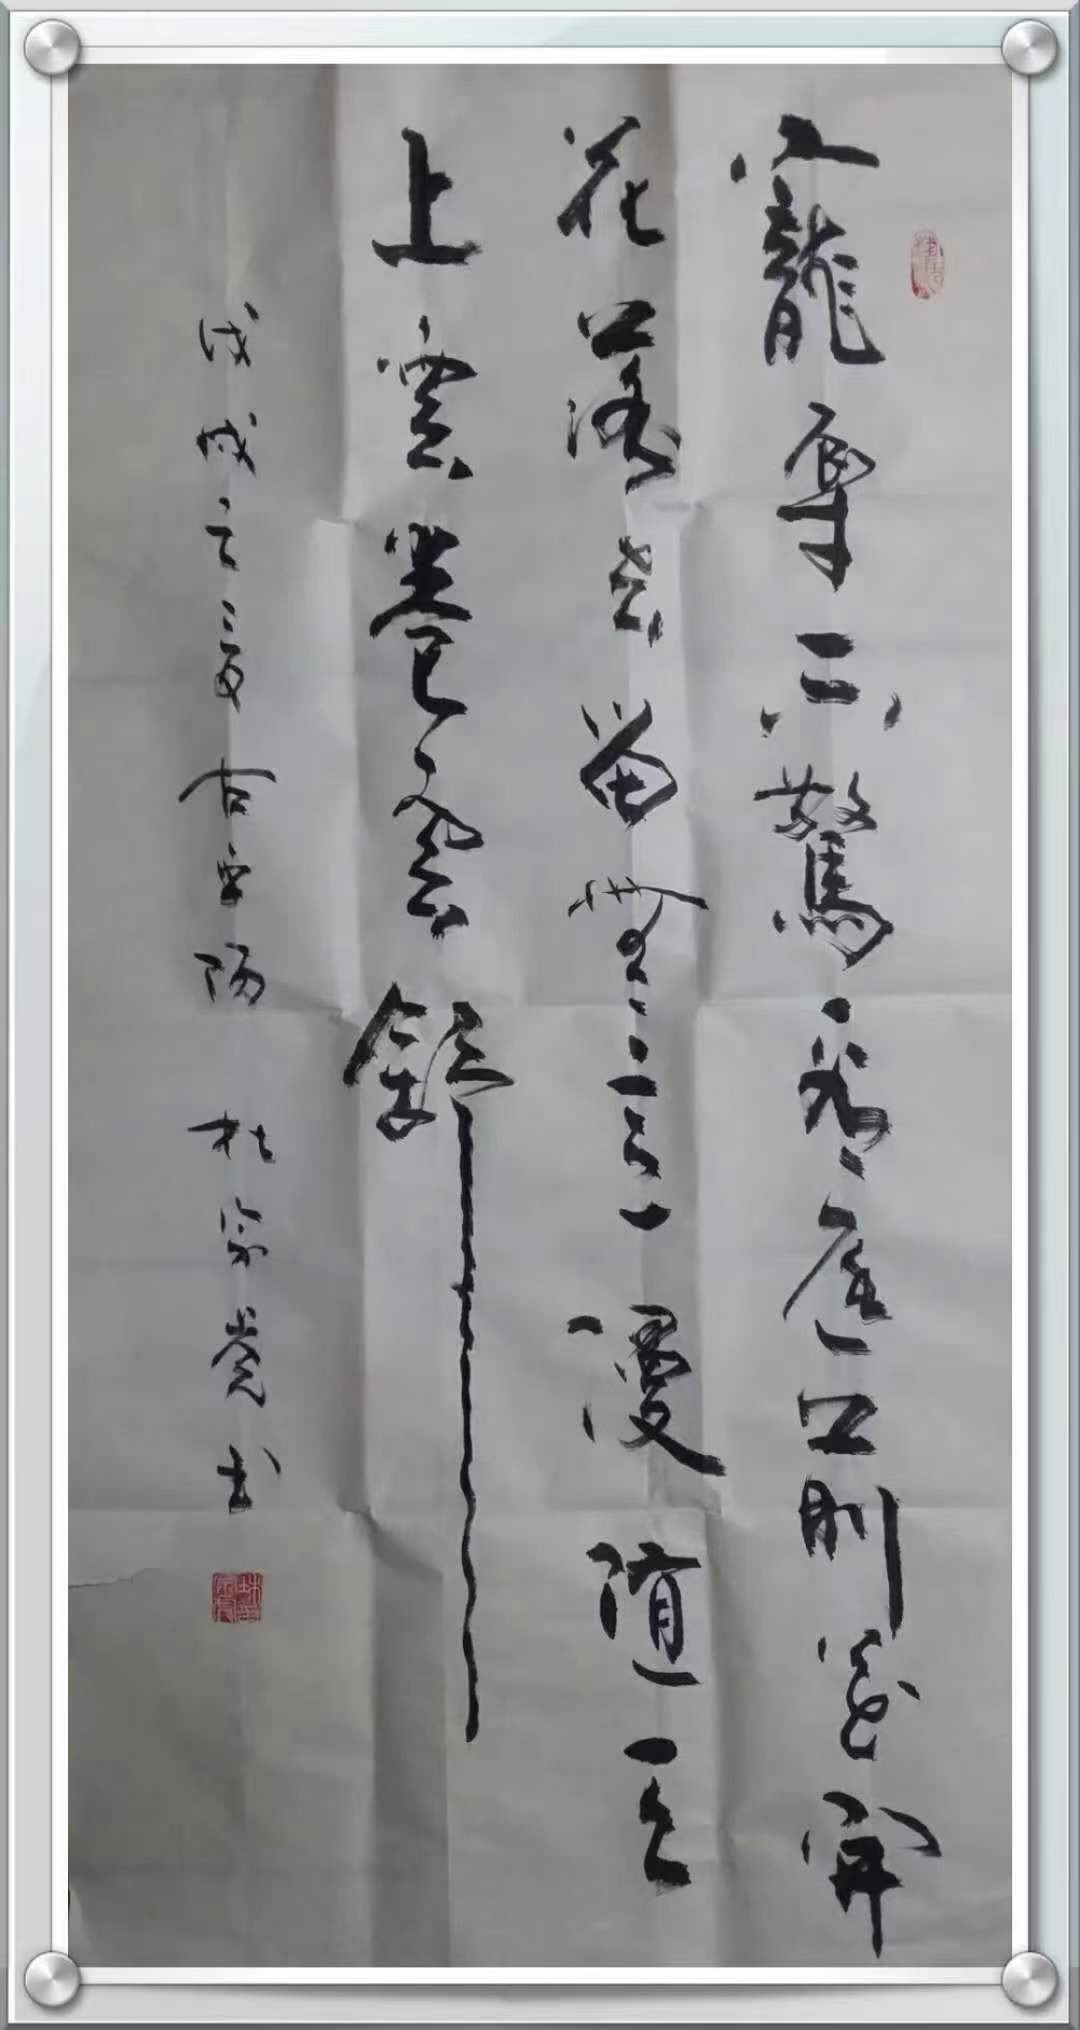 寵辱不驚看庭前花開
花落去留無意漫隨天
上雲卷雲舒
戊戌之夏古平陽 杜宗书